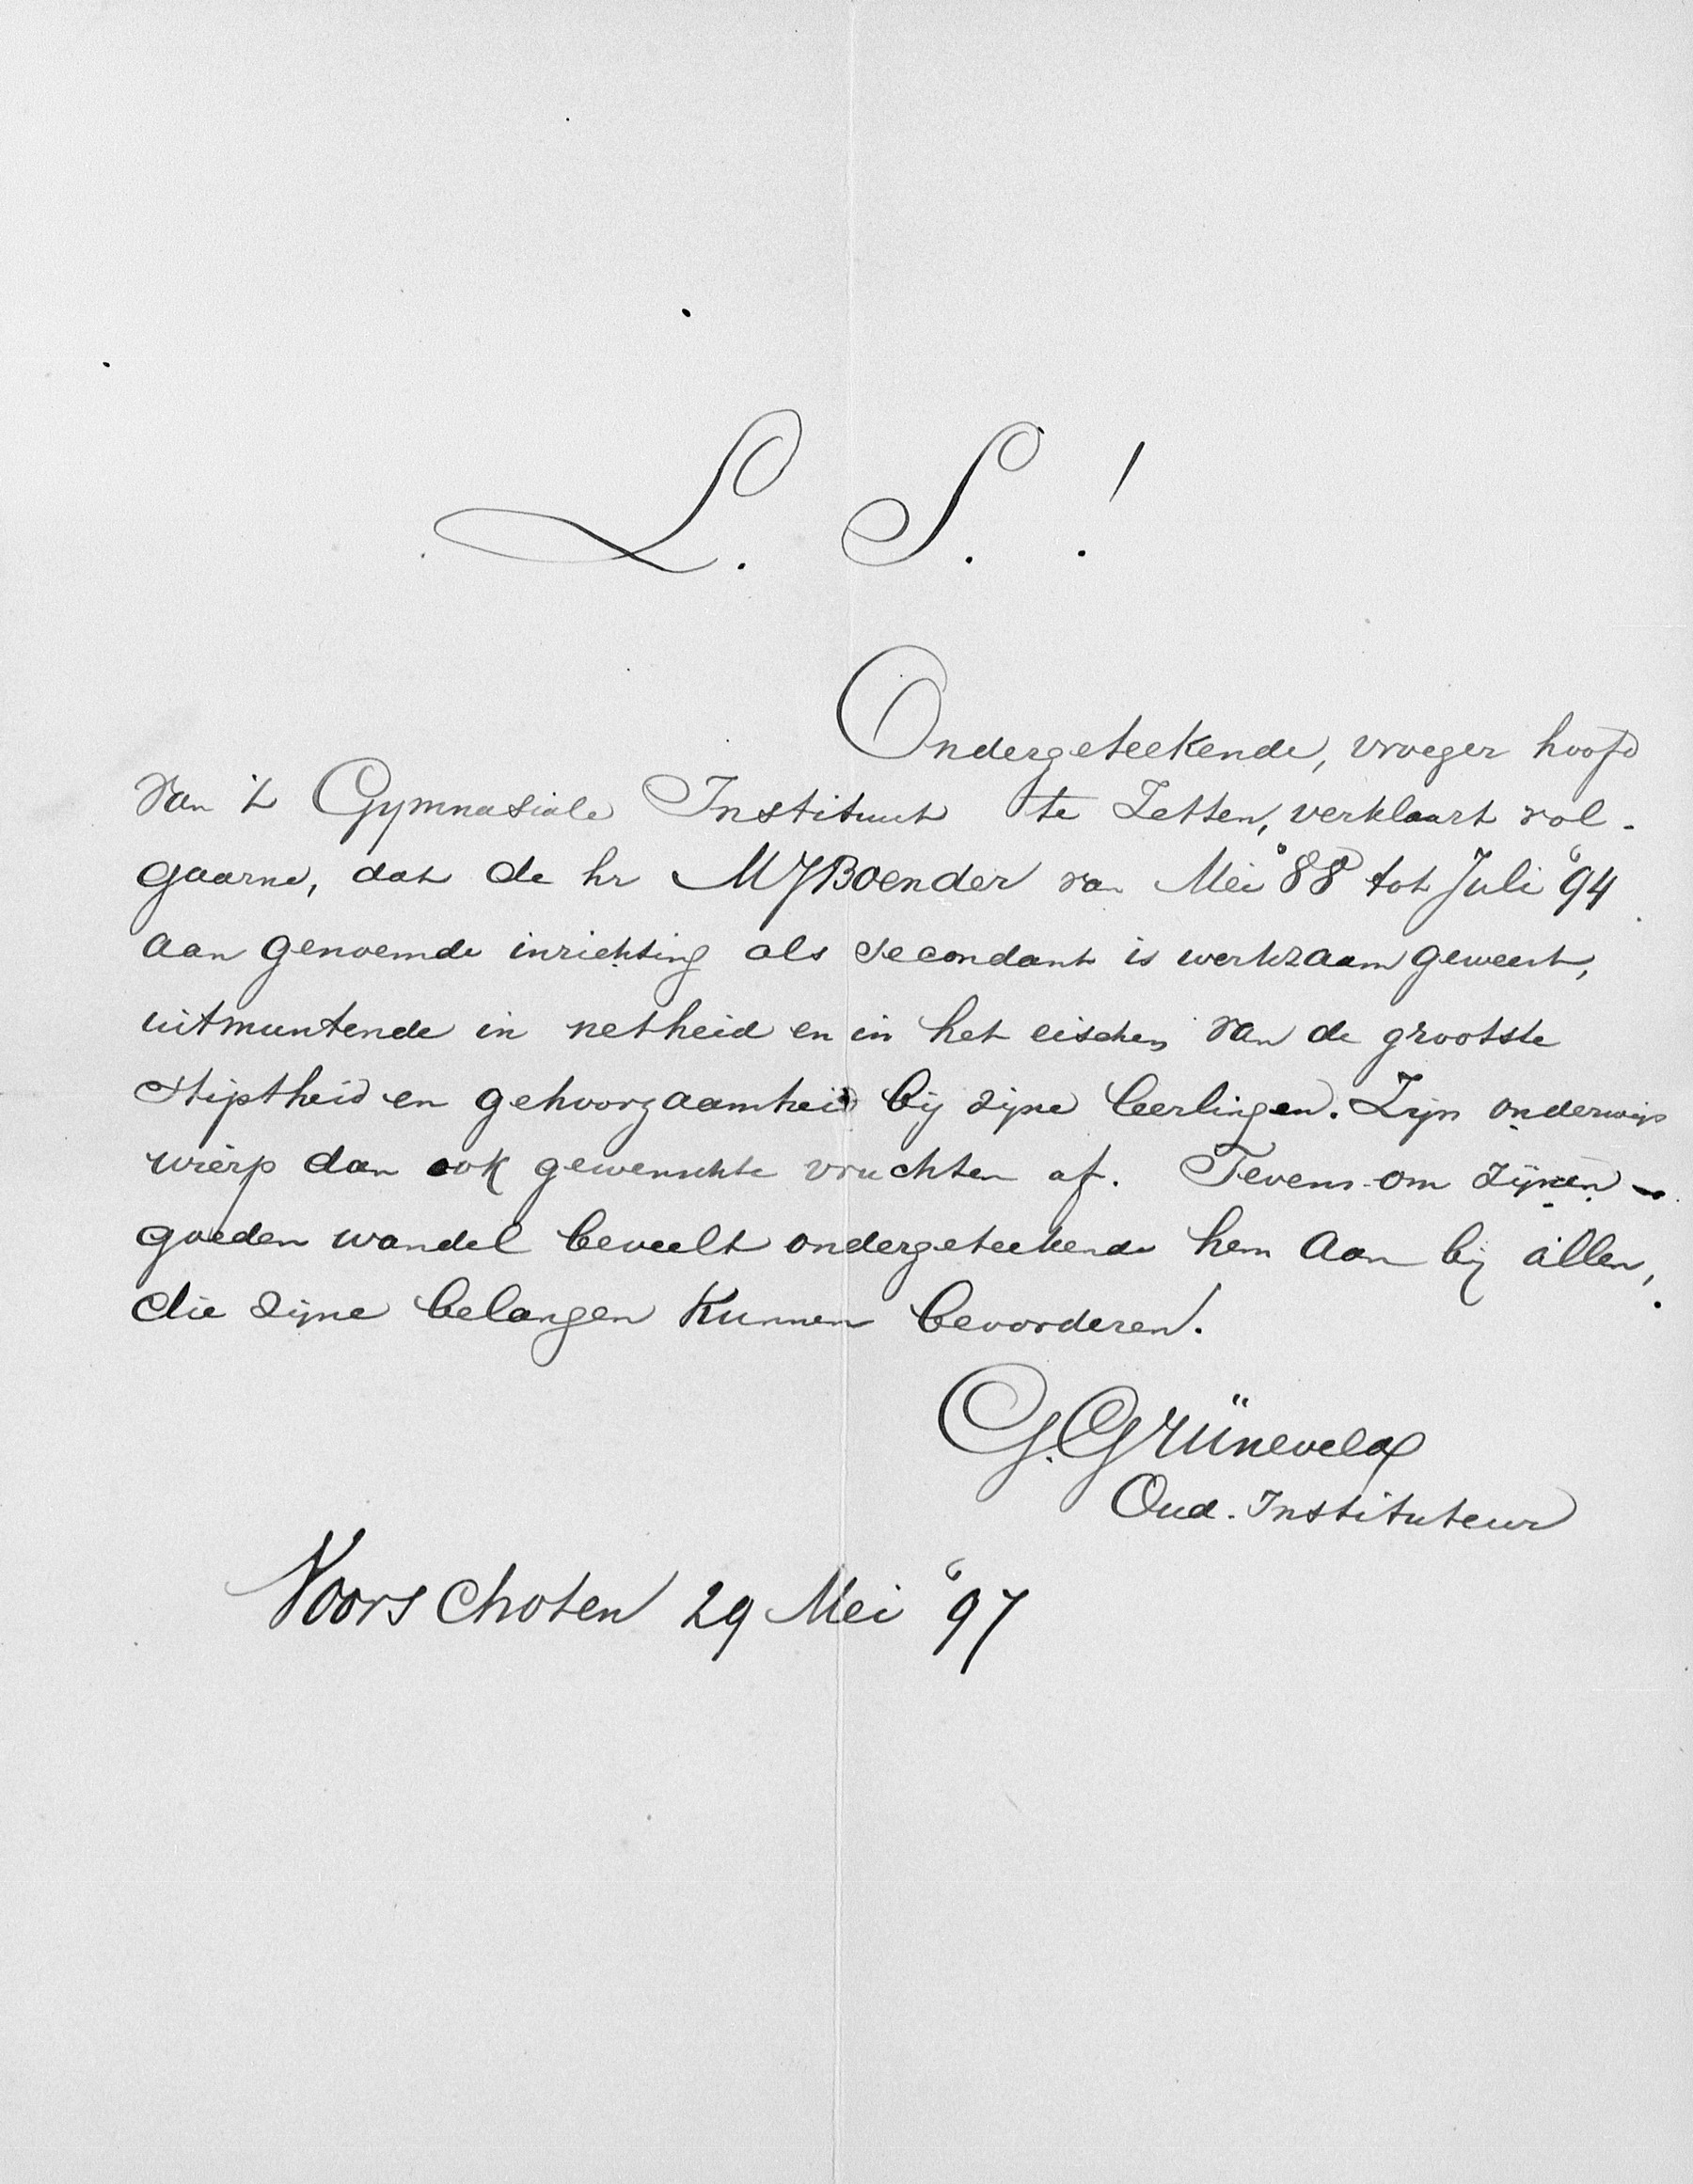 L. S. !
Ondergeteekende, vroeger hoofd
van 't Gymnasiale Instituut te Zetten, verklaart vol-
gaarne, dat de hr MJBoender van Mei '88 tot Juli '94
aan genoemde inrichting als secondant is werkzaam geweest,
uitmuntende in netheid en in het eischen van de grootste
stiptheid en gehoorzaamheid bij zijne leerlingen. Zijn onderwijs
wierp dan ook gewenschte vruchten af. Tevens om zijnen
goeden wandel beveelt ondergeteekende hem aan bij allen,
die zijne belangen kunnen bevorderen.
G. Grüneveld
Oud-Instituteur
Voorschoten 29 Mei '97